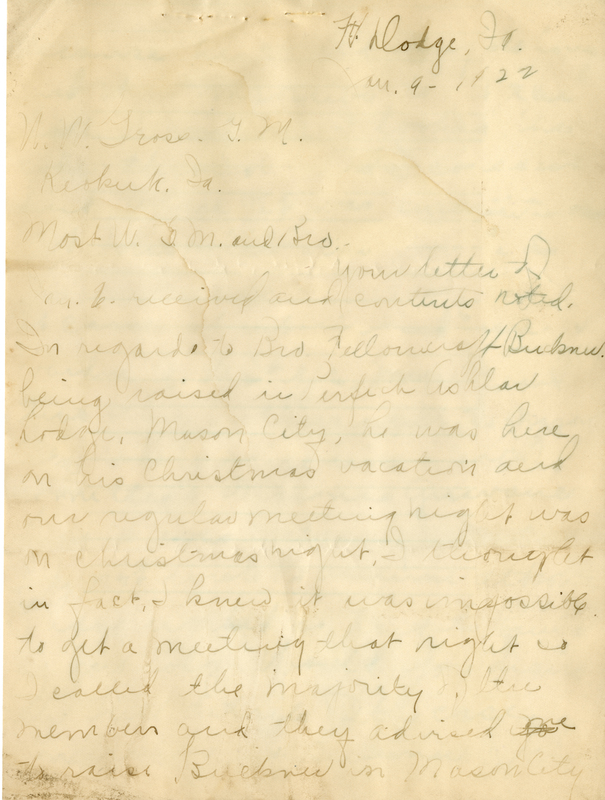 Ft. Dodge, Ia.
Jan. 9 - 1922
N. W. Grose. G. M.
Keokuk. Ia.
Most W. G. M. and Bro.
Your letter of
Jan. 6. received and contents noted.
In regards to Bro Fellowcraft Buckner.
being raised in Perfect Ashlar
Lodge, Mason City, he was here
on his Christmas vacation and
our regular meeting night was
on christmas night, I thought
in fact, I knew it was impossible
to get a meeting that night so
I called the majority of the
members and they advised me
to raise Buckner in Mason City